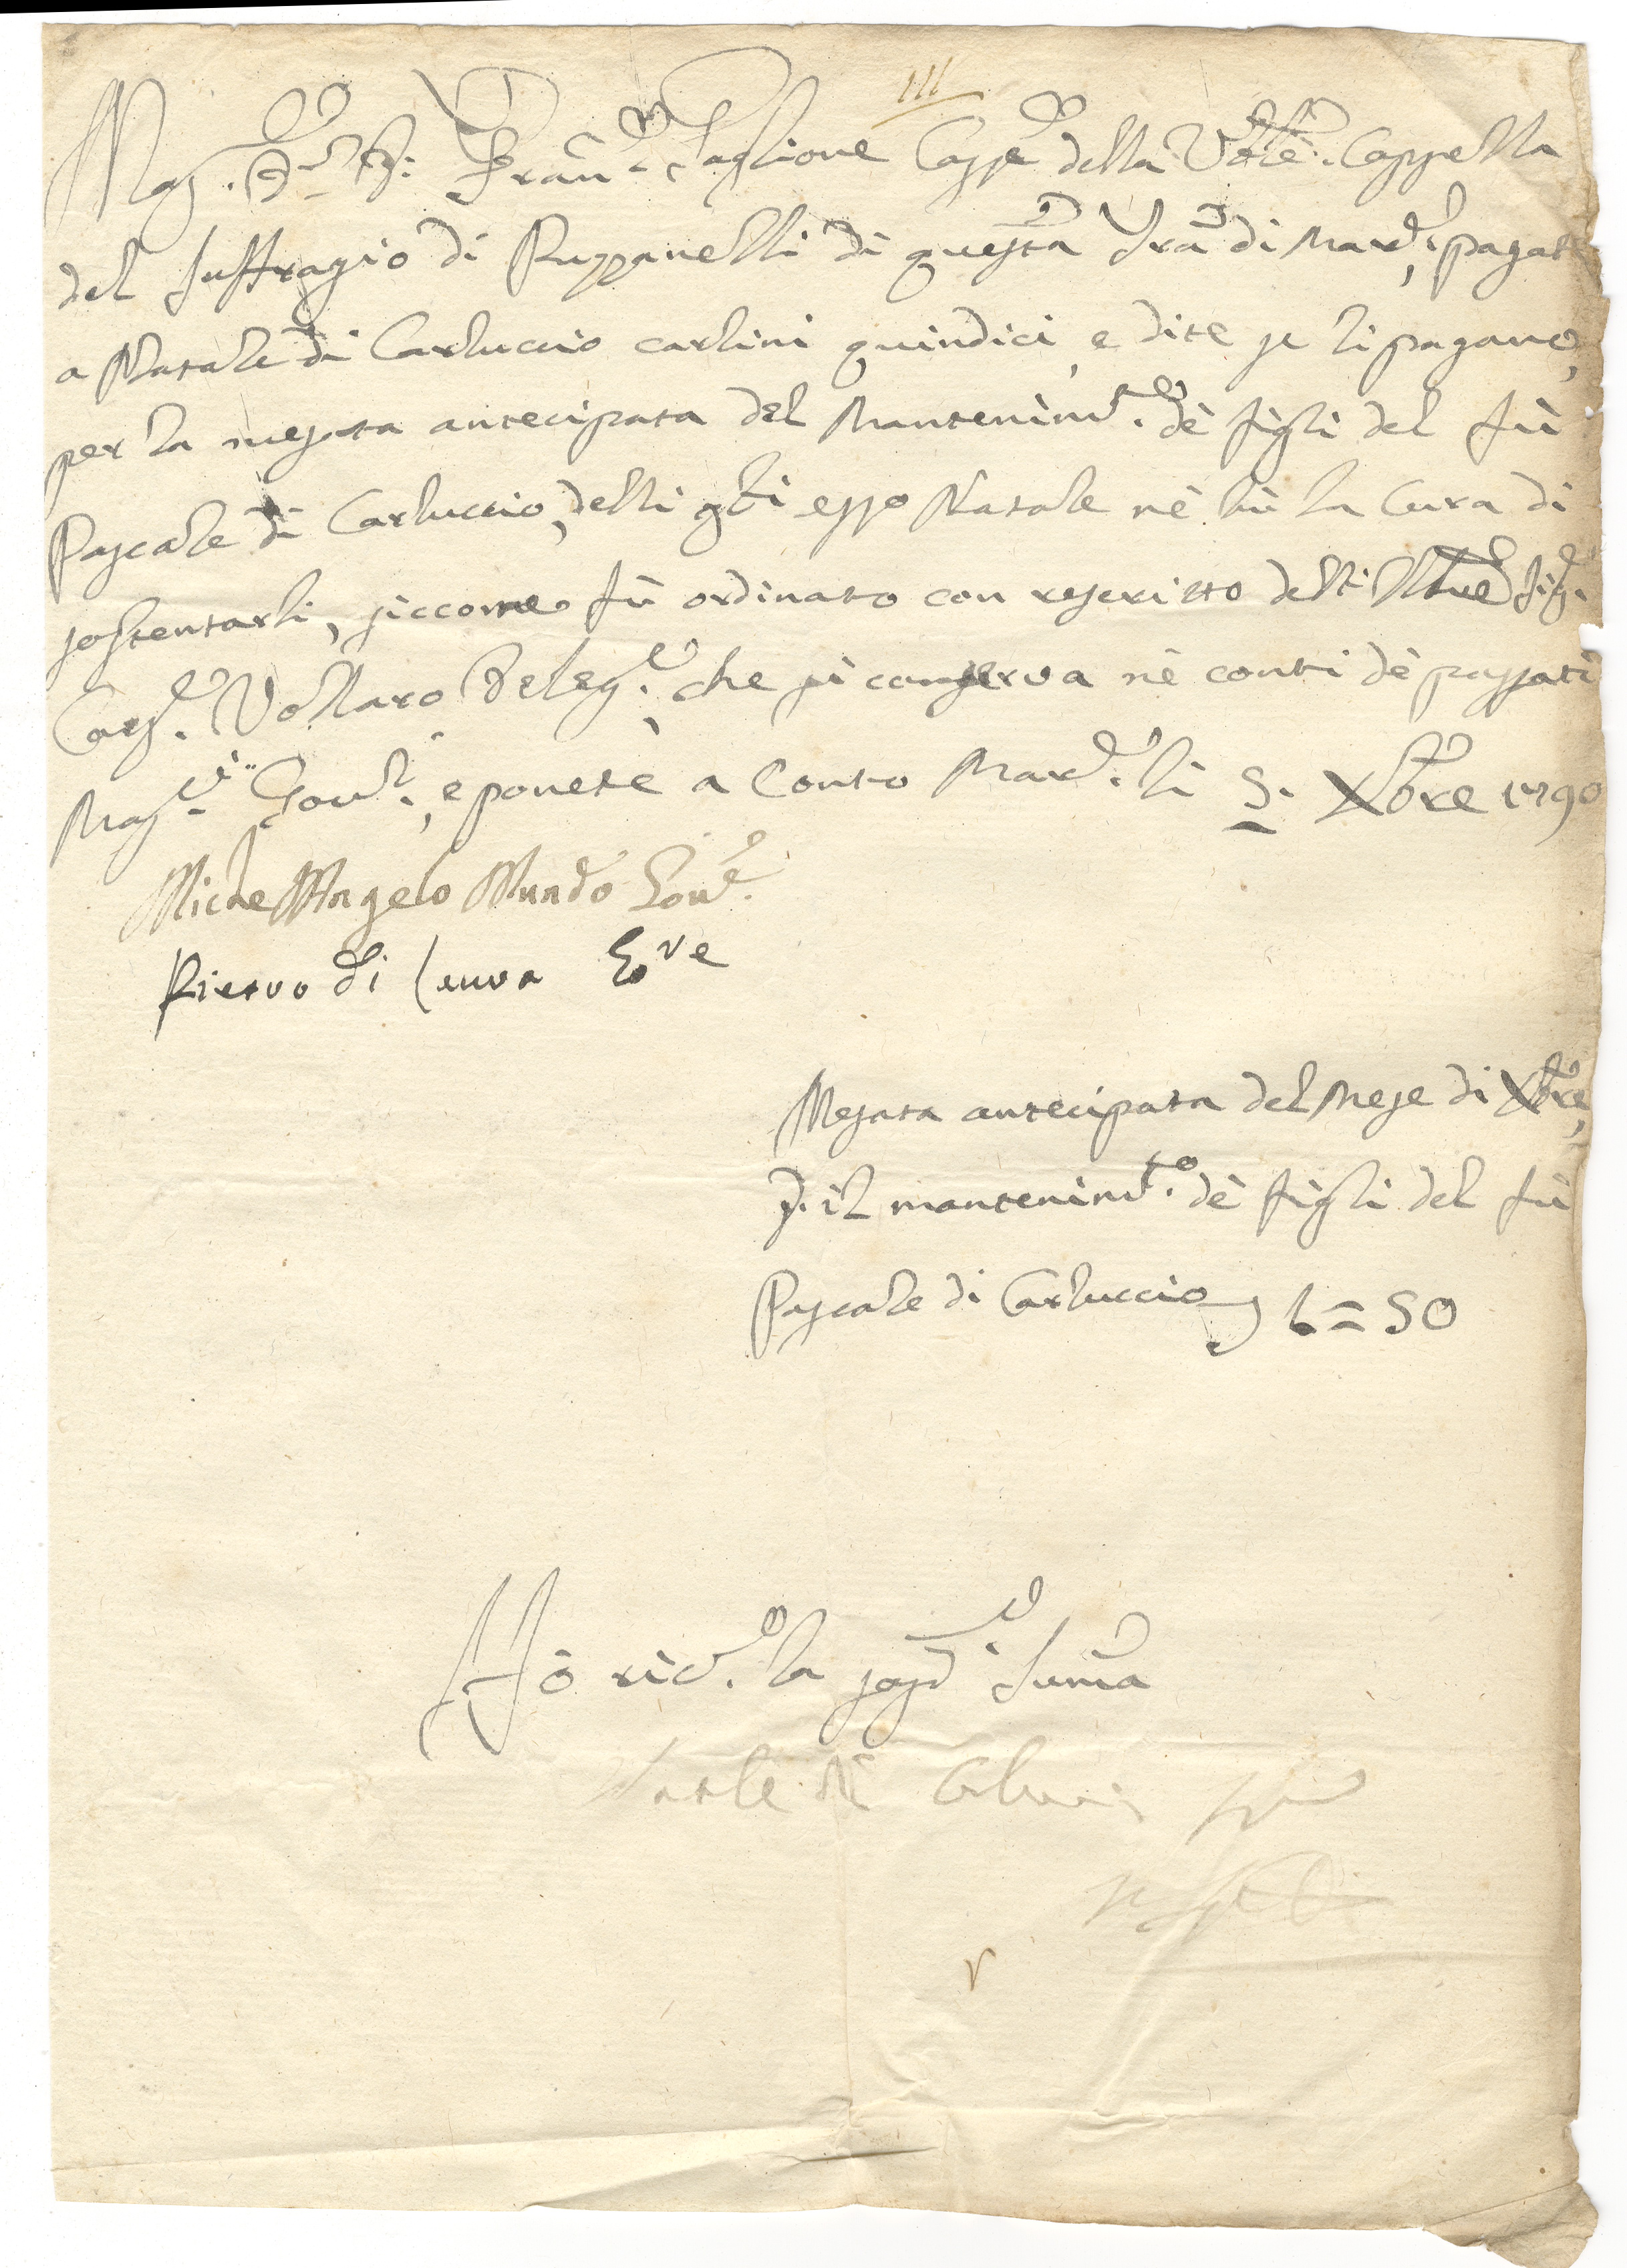 III
Mag. Dr. Fis: Fran.co Taglione Cassre della Vñle. Cappella
del Suffragio di Ruzzanelli di questa Trã di Mard.e, pagate
a Natale di Carluccio carlini quindici, e dite se li pagano,
per la mesata antecipata del Mantenim.to dè figli del fù
Pascale di Carluccio, delli qli esso Natale nè hà la Cura di
sostentarli, siccome fù ordinato con rescritto dell'Illre Sig.r
Cav.e Vollaro Deleg.o, che si conserva nè conti dè passati
Mag.ci Gov.ri, e ponete a Conto Mard.e li 5. Xbre 1790
Michel'Angelo Mundo Gov.e
Pietro di Cenva Gove
Mesata antecipata del Mese di Xbre,
p. il mantenim.to dè figli del fù
Pascale di Carluccio 1=50
Hò ric.o la sop.a Summa
Natale di